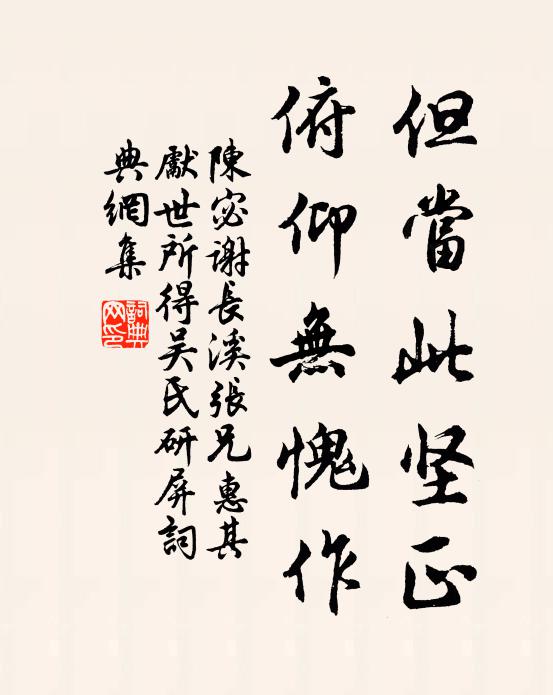 但當此坚正
俯仰無愧作
陳宓謝長溪張兄惠其
獻世所得吴氏研屏詞
典網集
詞典網印